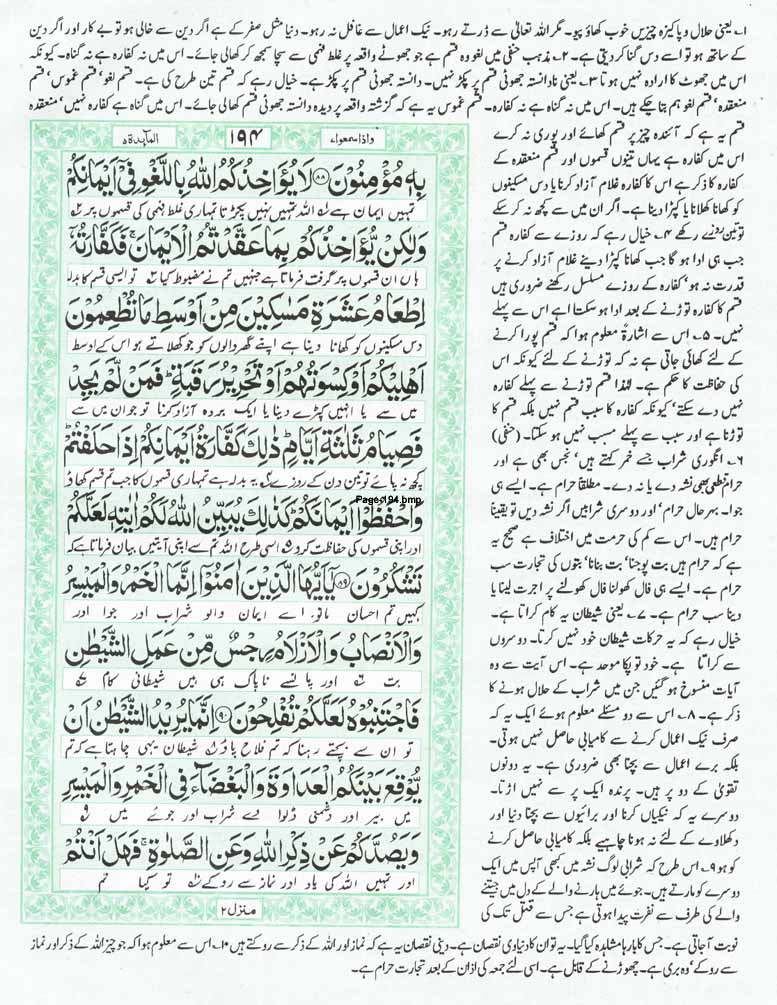 ۱؎ یعنی حلال و پاکیزہ چیزیں خوب کھاؤ پیو۔ مگر اللہ تعالیٰ سے ڈرتے رہو۔ نیک اعمال سے غافل نہ رہو۔ دنیا مثل صفر کے ہے اگر دین سے خالی ہو تو بے کار اور اگر دین
کے ساتھ ہو تو اسے دس گنا کر دیتی ہے۔ ۲؎ مذہب حنفی میں لغو وہ قسم ہے جو جھوٹے واقعہ پر غلط فہمی سے سچا سمجھ کر کھالی جائے۔ اس میں نہ کفارہ ہے نہ گناہ۔ کیونکہ
اس میں جھوٹ کا ارادہ نہیں ہوتا ۳؎ یعنی نادانستہ جھوٹی قسم پر پکڑ نہیں۔ دانستہ جھوٹی قسم پر پکڑ ہے۔ خیال رہے کہ قسم تین طرح کی ہے۔ قسم لغو‘ قسم غموس‘ قسم
منعقدہ‘ قسم لغو ہم بتا چکے ہیں۔ اس میں نہ گناہ ہے نہ کفارہ۔ قسم غموس یہ ہے کہ گزشتہ واقعہ پر دیدہ دانستہ جھوٹی قسم کھالی جائے۔ اس میں گناہ ہے کفارہ نہیں‘ منعقدہ
قسم یہ ہے کہ آئندہ چیز پر قسم کھائے اور پوری نہ کرے
اس میں کفارہ ہے یہاں تینوں قسموں اور قسم منعقدہ کے
کفارہ کا ذکر ہے اس کا کفارہ غلام آزاد کرنا یا دس مسکینوں
کو کھانا کھلانا یا کپڑا دینا ہے۔ اگر ان میں سے کچھ نہ کر سکے
تو تین روزے رکھے ۴؎ خیال رہے کہ روزے سے کفارہ قسم
جب ہی ادا ہو گا جب کھانا کپڑا دینے غلام آزاد کرنے پر
قدرت نہ ہو‘ کفارہ کے روزے مسلسل رکھنے ضروری ہیں
قسم کا کفارہ توڑنے کے بعد ادا ہو سکتا ہے اس سے پہلے
نہیں۔ ۵؎ اس سے اشارۃً معلوم ہوا کہ قسم پورا کرنے
کے لئے کھائی جاتی ہے نہ کہ توڑنے کے لئے کیونکہ اس
کی حفاظت کا حکم ہے۔ لہٰذا قسم توڑنے سے پہلے کفارہ
نہیں دے سکتے‘ کیونکہ کفارہ کا سبب قسم نہیں بلکہ قسم کا
توڑنا ہے اور سبب سے پہلے مسبب نہیں ہو سکتا۔ (حنفی)
۶؎ انگوری شراب جسے خمر کہتے ہیں‘ نجس بھی ہے اور
حرام قطعی بھی نشہ دے یا نہ دے۔ مطلقاً حرام ہے۔ ایسے ہی
جوا۔ بہرحال حرام‘ اور دوسری شرابیں اگر نشہ دیں تو یقیناً
حرام ہیں۔ اس سے کم کی حرمت میں اختلاف ہے صحیح یہ
ہے کہ حرام ہیں بت پوجنا‘ بت بنانا‘ بتوں کی تجارت سب
حرام ہے۔ ایسے ہی فال کھولنا فال کھولنے پر اجرت لینا یا
دینا سب حرام ہے۔ ۷؎ یعنی شیطان یہ کام کراتا ہے۔
خیال رہے کہ یہ حرکات شیطان خود نہیں کرتا۔ دوسروں
سے کراتا ہے۔ خود تو پکا موحد ہے۔ اس آیت سے وہ
آیات منسوخ ہو گئیں جن میں شراب کے حلال ہونے کا
ذکر ہے۔ ۸؎ اس سے دو مسئلے معلوم ہوئے ایک یہ کہ
صرف نیک اعمال کرنے سے کامیابی حاصل نہیں ہوتی۔
بلکہ برے اعمال سے بچنا بھی ضروری ہے۔ یہ دونوں
تقویٰ کے دو پر ہیں۔ پرندہ ایک پر سے نہیں اڑتا۔
دوسرے یہ کہ نیکیاں کرنا اور برائیوں سے بچنا دنیا اور
دکھلاوے کے لئے نہ ہونا چاہیے بلکہ کامیابی حاصل کرنے
کو ہو ۹؎ اس طرح کہ شرابی لوگ نشہ میں کبھی آپس میں ایک
دوسرے کو مارتے ہیں۔ جوئے میں ہارنے والے کے دل میں جیتنے
والے کی طرف سے نفرت پیدا ہوتی ہے جس سے قتل تک کی
واذا سمعوا ۷
۱۹۴
المآئدۃ ۵
بِهٖ مُؤْمِنُوْنَ ۝۸۸ لَا يُؤَاخِذُكُمُ اللّٰهُ بِاللَّغْوِ فِيْٓ اَيْمَانِكُمْ
تمہیں ایمان ہے ۱؎ اللہ تمہیں نہیں پکڑتا تمہاری غلط فہمی کی قسموں پر ۲؎
وَلٰكِنْ يُّؤَاخِذُكُمْ بِمَا عَقَّدْتُّمُ الْاَيْمَانَ ۚ فَكَفَّارَتُهٗٓ
ہاں ان قسموں پر گرفت فرماتا ہے جنہیں تم نے مضبوط کیا ۳؎ تو ایسی قسم کا بدلہ
اِطْعَامُ عَشَرَةِ مَسٰكِيْنَ مِنْ اَوْسَطِ مَا تُطْعِمُوْنَ
دس مسکینوں کو کھانا دینا ہے اپنے گھر والوں کو جو کھلاتے ہو اس کے اوسط
اَهْلِيْكُمْ اَوْ كِسْوَتُهُمْ اَوْ تَحْرِيْرُ رَقَبَةٍ ۭ فَمَنْ لَّمْ يَجِدْ
میں سے یا انہیں کپڑے دینا یا ایک بردہ آزاد کرنا تو جو ان میں سے
فَصِيَامُ ثَلٰثَةِ اَيَّامٍ ۭ ذٰلِكَ كَفَّارَةُ اَيْمَانِكُمْ اِذَا حَلَفْتُمْ ۭ
کچھ نہ پائے تو تین دن کے روزے ۴؎ یہ بدلہ ہے تمہاری قسموں کا جب تم قسم کھاؤ
Page-194.bmp
وَاحْفَظُوْٓا اَيْمَانَكُمْ ۭ كَذٰلِكَ يُبَيِّنُ اللّٰهُ لَكُمْ اٰيٰتِهٖ لَعَلَّكُمْ
اور اپنی قسموں کی حفاظت کرو ۵؎ اسی طرح اللہ تم سے اپنی آیتیں بیان فرماتا ہے کہ
تَشْكُرُوْنَ ۝۸۹ يٰٓاَيُّهَا الَّذِيْنَ اٰمَنُوْٓا اِنَّمَا الْخَمْرُ وَالْمَيْسِرُ
کہیں تم احسان مانو۔ اے ایمان والو شراب اور جوا اور
وَالْاَنْصَابُ وَالْاَزْلَامُ رِجْسٌ مِّنْ عَمَلِ الشَّيْطٰنِ
بت ۶؎ اور پانسے ناپاک ہی ہیں شیطانی کام ۷؎
فَاجْتَنِبُوْهُ لَعَلَّكُمْ تُفْلِحُوْنَ ۝۹۰ اِنَّمَا يُرِيْدُ الشَّيْطٰنُ اَنْ
تو ان سے بچتے رہنا کہ تم فلاح پاؤ ۸؎ شیطان یہی چاہتا ہے کہ تم
يُّوْقِعَ بَيْنَكُمُ الْعَدَاوَةَ وَالْبَغْضَآءَ فِي الْخَمْرِ وَالْمَيْسِرِ
میں بیر اور دشمنی ڈلوا دے شراب اور جوئے میں ۹؎
وَيَصُدَّكُمْ عَنْ ذِكْرِ اللّٰهِ وَعَنِ الصَّلٰوةِ ۚ فَهَلْ اَنْتُمْ
اور تمہیں اللہ کی یاد اور نماز سے روکے ۱۰؎ تو کیا تم
منزل ۲
نوبت آ جاتی ہے۔ جس کا بارہا مشاہدہ کیا گیا۔ یہ تو ان کا دنیاوی نقصان ہے۔ دینی نقصان یہ ہے کہ نماز اور اللہ کے ذکر سے روکتے ہیں ۱۰؎ اس سے معلوم ہوا کہ جو چیز اللہ کے ذکر اور نماز
سے روکے‘ وہ بری ہے۔ چھوڑنے کے قابل ہے۔ اسی لئے جمعہ کی اذان کے بعد تجارت حرام ہے۔